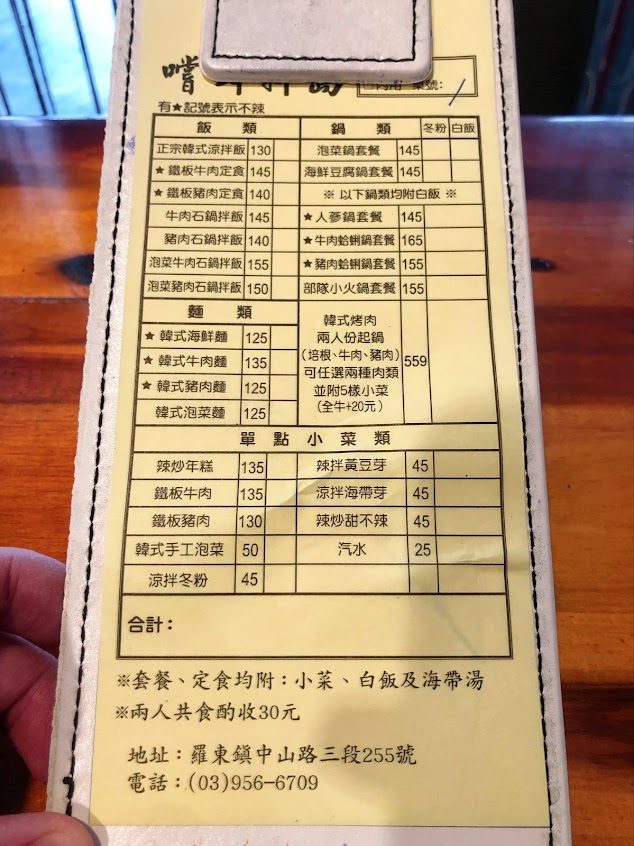 嚐
內用 桌號：/
有★記號表示不辣
飯類
正宗韓式涼拌飯 130
★鐵板牛肉定食 145
★鐵板豬肉定食 140
牛肉石鍋拌飯 145
豬肉石鍋拌飯 140
泡菜牛肉石鍋拌飯 155
泡菜豬肉石鍋拌飯 150
麵類
★韓式海鮮麵 125
★韓式牛肉麵 135
★韓式豬肉麵 125
韓式泡菜麵 125
鍋類 冬粉 白飯
泡菜鍋套餐 145
海鮮豆腐鍋套餐 145
※以下鍋類均附白飯※
★人蔘鍋套餐 145
★牛肉蛤蜊鍋套餐 165
★豬肉蛤蜊鍋套餐 155
部隊小火鍋套餐 155
韓式烤肉
兩人份起鍋
（培根、牛肉、豬肉） 559
可任選兩種肉類
並附5樣小菜
（全牛+20元）
單點小菜類
辣炒年糕 135 辣拌黃豆芽 45
鐵板牛肉 135 涼拌海帶芽 45
鐵板豬肉 130 辣炒甜不辣 45
韓式手工泡菜 50 汽水 25
涼拌冬粉 45
合計：
※套餐、定食均附：小菜、白飯及海帶湯
※兩人共食酌收30元
地址：羅東鎮中山路三段255號
電話：(03)956-6709